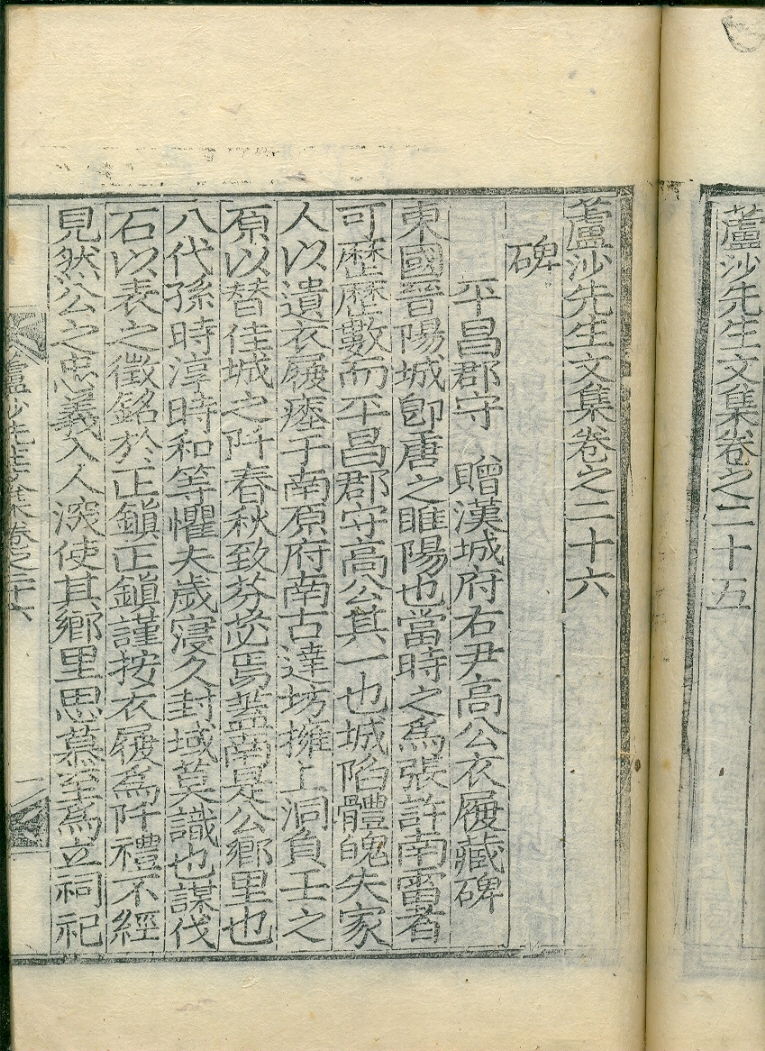 蘆沙先生文集卷之二十五
蘆沙先生文集卷之二十六
碑
平昌郡守贈漢城府右尹高公衣屨藏碑
東國晉陽城卽唐之睢陽也當時之爲張許南雷者
可歷歷數而平昌郡守高公其一也城陷體魄失家
人以遺衣屨瘞于南原府南古達坊擁上洞負壬之
原以替佳城之阡春秋致芬苾焉蓋南是公鄕里也
八代孫時淳時和等懼夫歲寖久封域莫識也謀伐
石以表之徵銘於正鎭正鎭謹按衣屨爲阡禮不經
見然公之忠義入人深使其鄕里思慕至爲立祠祀
蘆沙先生文集卷之二十六
一